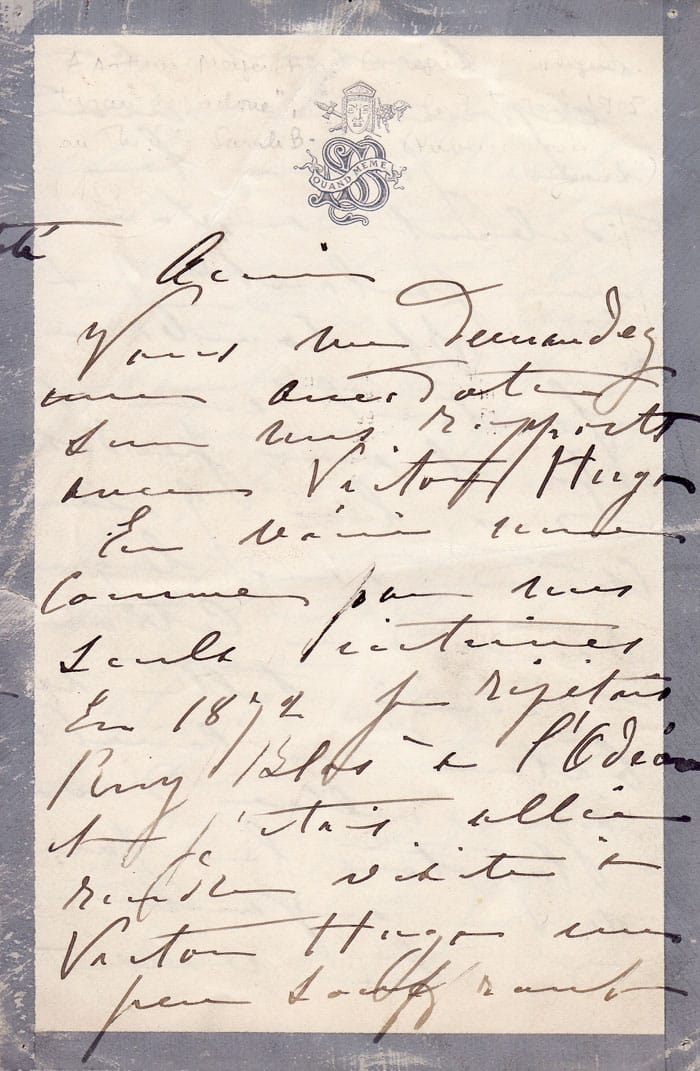 QUAND MEME
Ami
Vous me demandez
une anecdote
sur mes rapports
avec Victor Hugo
En voici une
connue par nous
seuls intimes
En 1872 je répétais
Ruy Blas à l'Odéon
et j'étais allée
rendre visite à
Victor Hugo un
peu souffrant